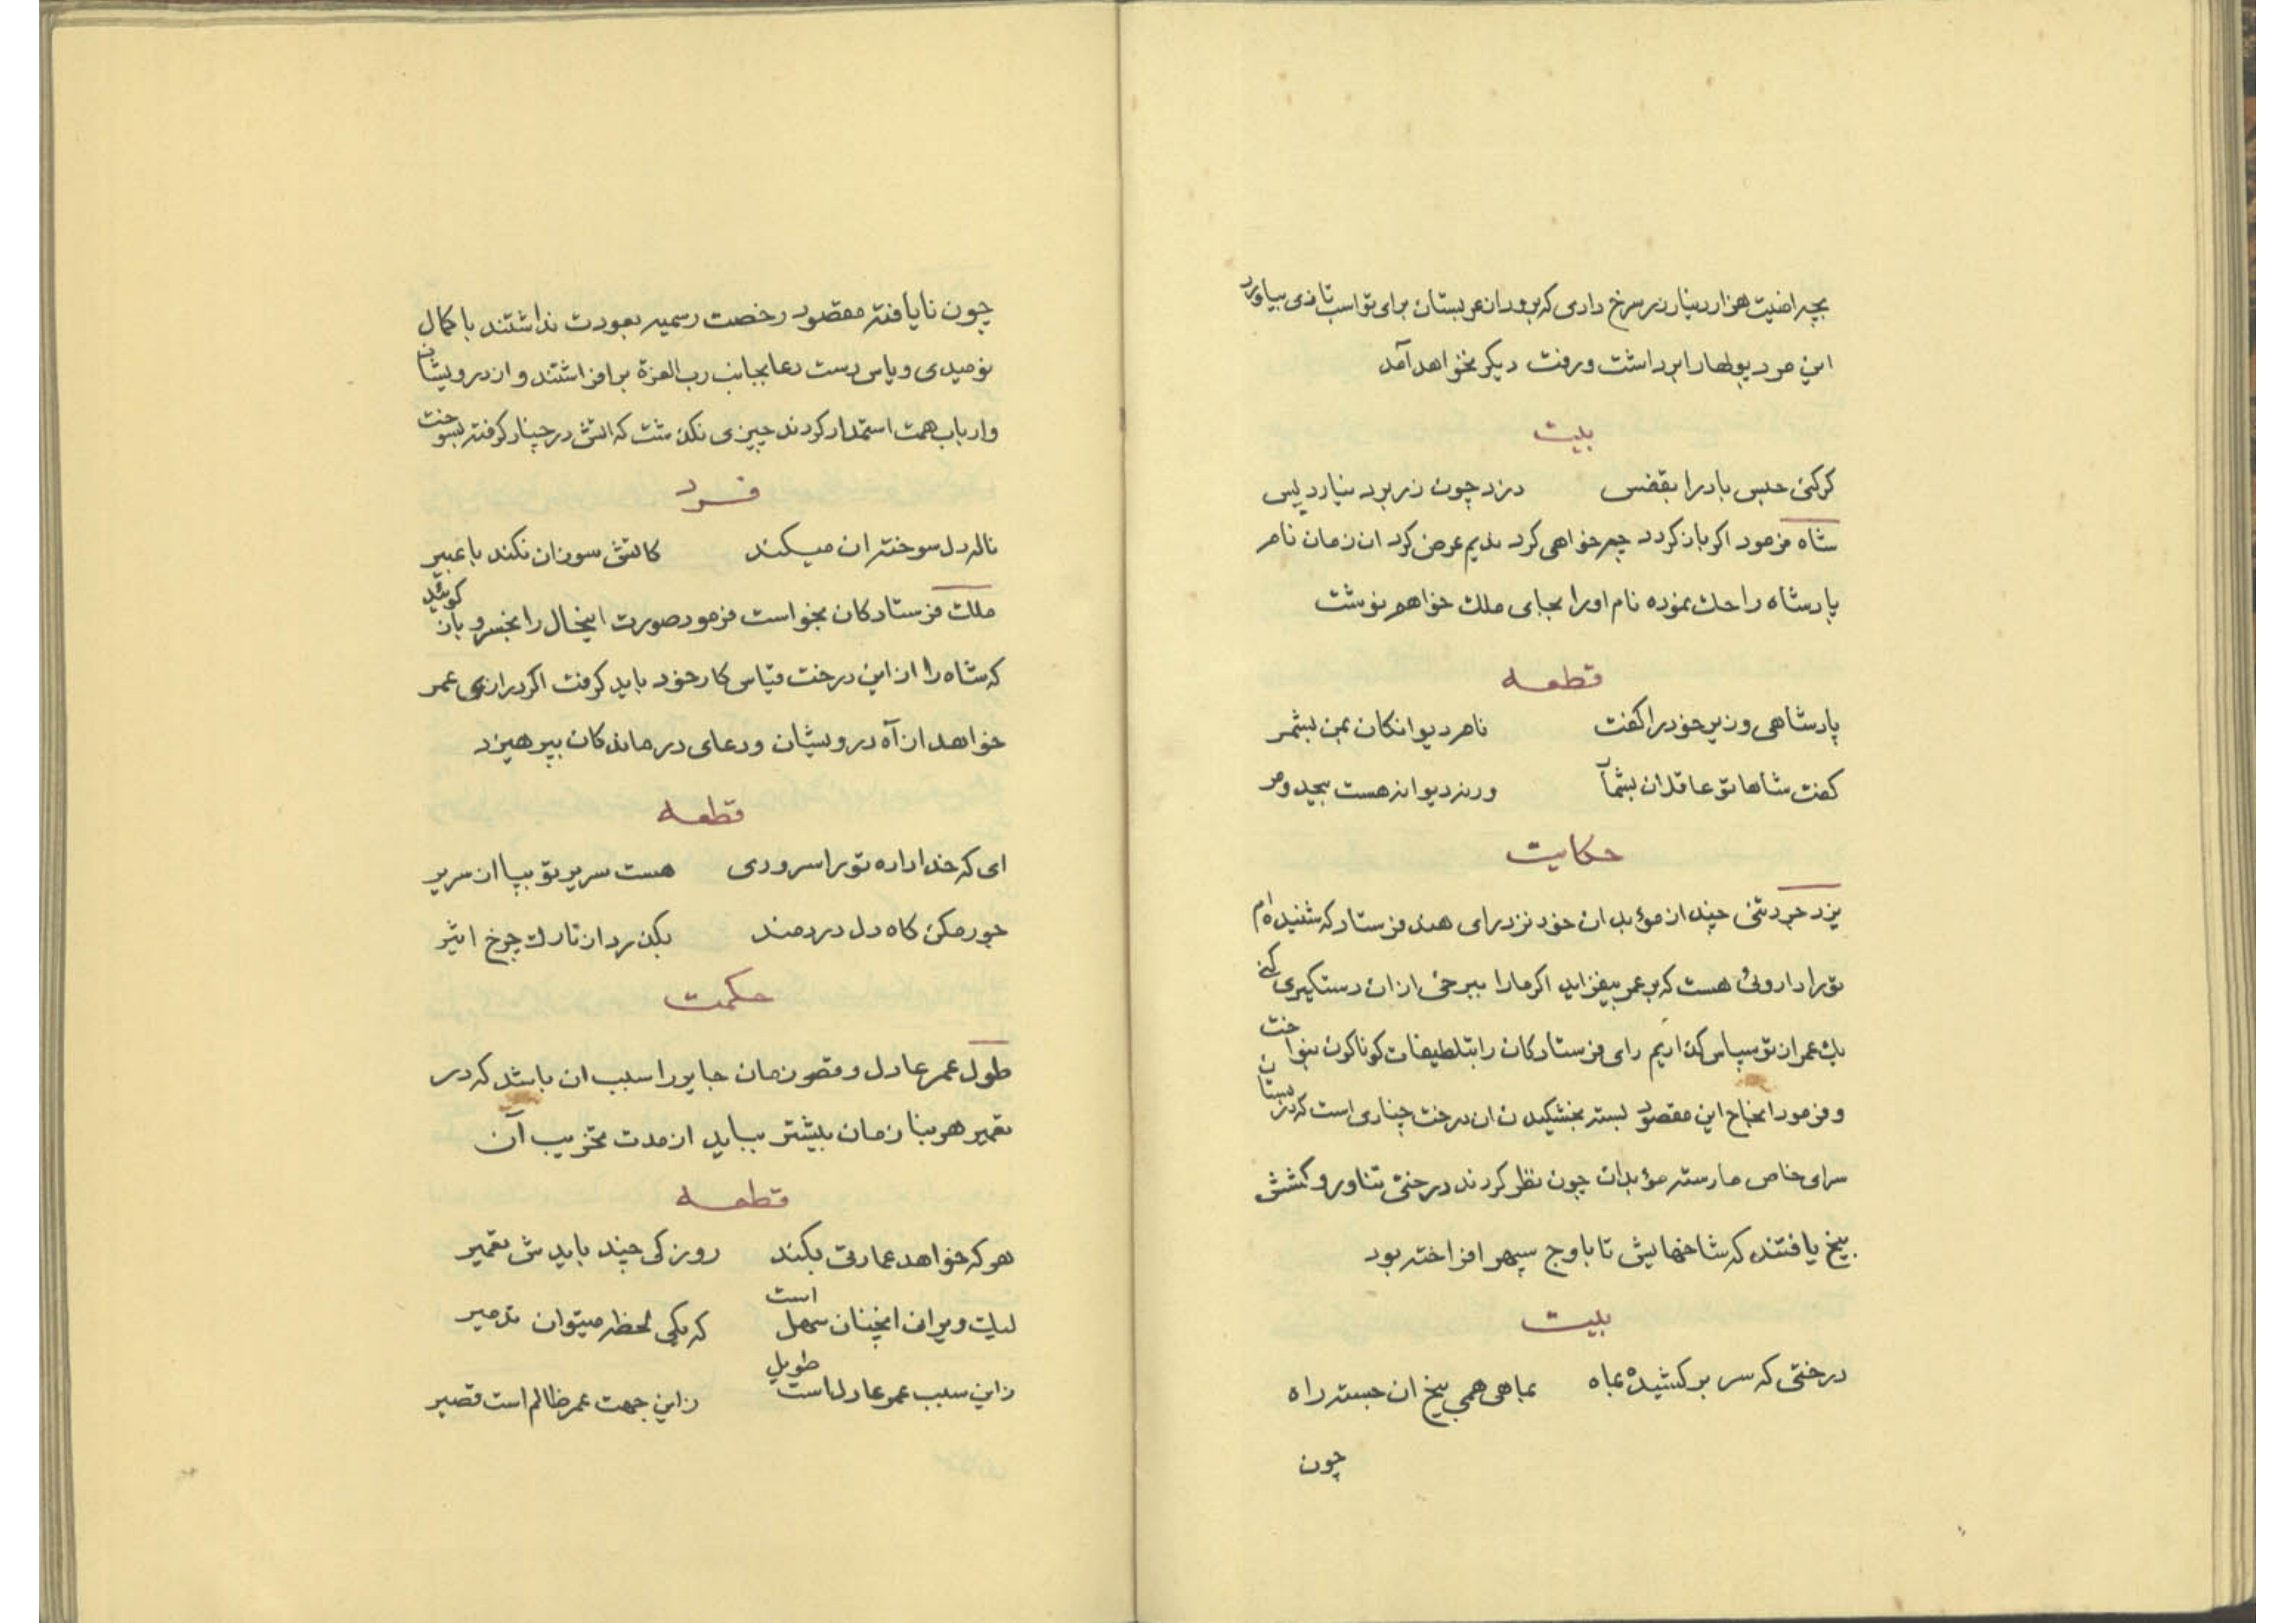 بچه راضیت هزار دینار زر سرخ دادی که برود از عربستان برای تو اسب تازی بیاورد
این مرد پولها را برداشت و رفت دیکر نخواهد آمد
بیت
کر کنی حبس باد را بقفس دزد چون زر برد نیارد پس
شاه فرمود اکر باز کردد چه خواهی کرد ندیم عرض کرد ان زمان نام
پادشاه را حک نموده نام او را بجای ملک خواهم نوشت
قطعه
پادشاهی وزیر خود را کفت نام دیوانکان بمن بشمر
کفت شاها تو عاقلان بشمار ورنه دیوانه هست بیحد و مر
حکایت
یزدجرد تنی چند از مؤبدان خود نزد رای هند فرستاد که شنیده‌ام
تو را داروئی هست که بر عمر بیفزاید اکر ما را ببرخی از ان دستکیری کنی
یک عمر از تو سپاس کذاریم رای فرستادکان را بتلطیفات کوناکون بنواخت
و فرمود انجاح این مقصود بسته بخشکیدن ان درخت چناری است که در بستان
سرای خاص ما رسته مؤبدان چون نظر کردند درختی تناور و کشش
بیخ یافتند که شاخهایش تا باوج سپهر افراخته بود
بیت
درختی که سر بر کشیده بماه بماهی همی بیخ ان جسته راه
چون
چون نایافته مقصود رخصت رسمیه بعودت نداشتند با کمال
نومیدی و یاس دست دعا بجانب رب العزة بر افراشتند و از درویشان
و ارباب همت استمداد کردند چیزی نکذشت که اتش در چنار کرفته بسوخت
فرد
ناله دل سوخته ان میکند کاتش سوزان نکند با عبیر
ملک فرستادکان بخواست فرمود صورت اینحال را بخسرو باز کوئید
که شاه را از این درخت قیاس کار خود باید کرفت اکر درازی عمر
خواهد از آه درویشان و دعای درماندکان بپرهیزد
قطعه
ای که خدا داده تو را سروری هست سریر تو بپا ان سریر
جور مکن کاه دل دردمند بکذرد از تارک چرخ اثیر
حکمت
طول عمر عادل و قصر زمان جایر را سبب ان باشد که در
تعمیر هر بنا زمان بیشتر بباید از مدت تخریب آن
قطعه
هر که خواهد عمارتی بکند روزکی چند بایدش تعمیر
لیک ویرانی انچنان سهل است که بیکی لحظه میتوان تدمیر
زاین سبب عمر عادل است طویل زاین جهت عمر ظالم است قصیر